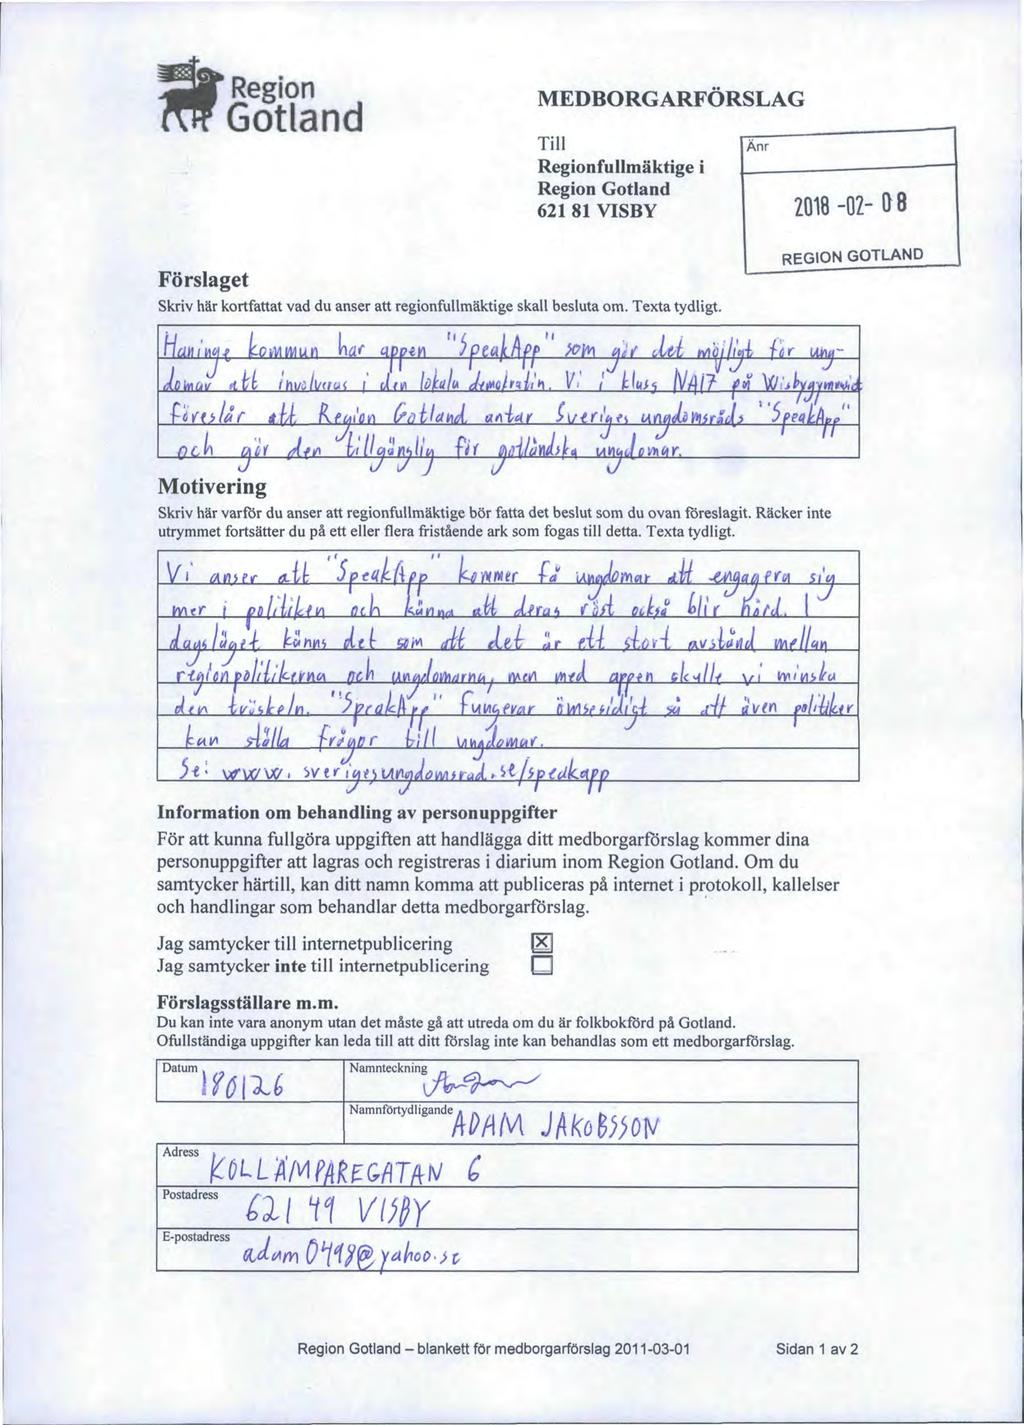 Region
Gotland
MEDBORGARFÖRSLAG
Till
Regionfullmäktige i
Region Gotland
621 81 VISBY
Änr
2018 -02- 08
REGION GOTLAND
Förslaget
Skriv här kortfattat vad du anser att regionfullmäktige skall besluta om. Texta tydligt.
Haninge kommun har appen "SpeakApp" som gör det möjligt för ung-
domar att involveras i den lokala demokratin. Vi i klass NA17 på Wisbygymnasiet
föreslår att Region Gotland antar Sveriges ungdomsråds "SpeakApp"
och gör den tillgänglig för gotländska ungdomar.
Motivering
Skriv här varför du anser att regionfullmäktige bör fatta det beslut som du ovan föreslagit. Räcker inte
utrymmet fortsätter du på ett eller flera fristående ark som fogas till detta. Texta tydligt.
Vi anser att "SpeakApp" kommer få ungdomar att engagera sig
mer i politiken och känna att deras röst också blir hörd. I
dagsläget känns det som att det är ett stort avstånd mellan
regionpolitikerna och ungdomarna, men med appen skulle vi minska
den tröskeln. "SpeakApp" fungerar ömsesidigt så att även politiker
kan ställa frågor till ungdomar.
Se: www.sverigesungdomsrad.se/speakapp
Information om behandling av personuppgifter
För att kunna fullgöra uppgiften att handlägga ditt medborgarförslag kommer dina
personuppgifter att lagras och registreras i diarium inom Region Gotland. Om du
samtycker härtill, kan ditt namn komma att publiceras på internet i protokoll, kallelser
och handlingar som behandlar detta medborgarförslag.
Jag samtycker till internetpublicering ☒
Jag samtycker inte till internetpublicering ☐
Förslagsställare m.m.
Du kan inte vara anonym utan det måste gå att utreda om du är folkbokförd på Gotland.
Ofullständiga uppgifter kan leda till att ditt förslag inte kan behandlas som ett medborgarförslag.
Datum 180126
Namnteckning
Namnförtydligande ADAM JAKOBSSON
Adress KOLLÄMPAREGATAN 6
Postadress 621 49 VISBY
E-postadress adam0498@yahoo.se
Region Gotland – blankett för medborgarförslag 2011-03-01 Sidan 1 av 2